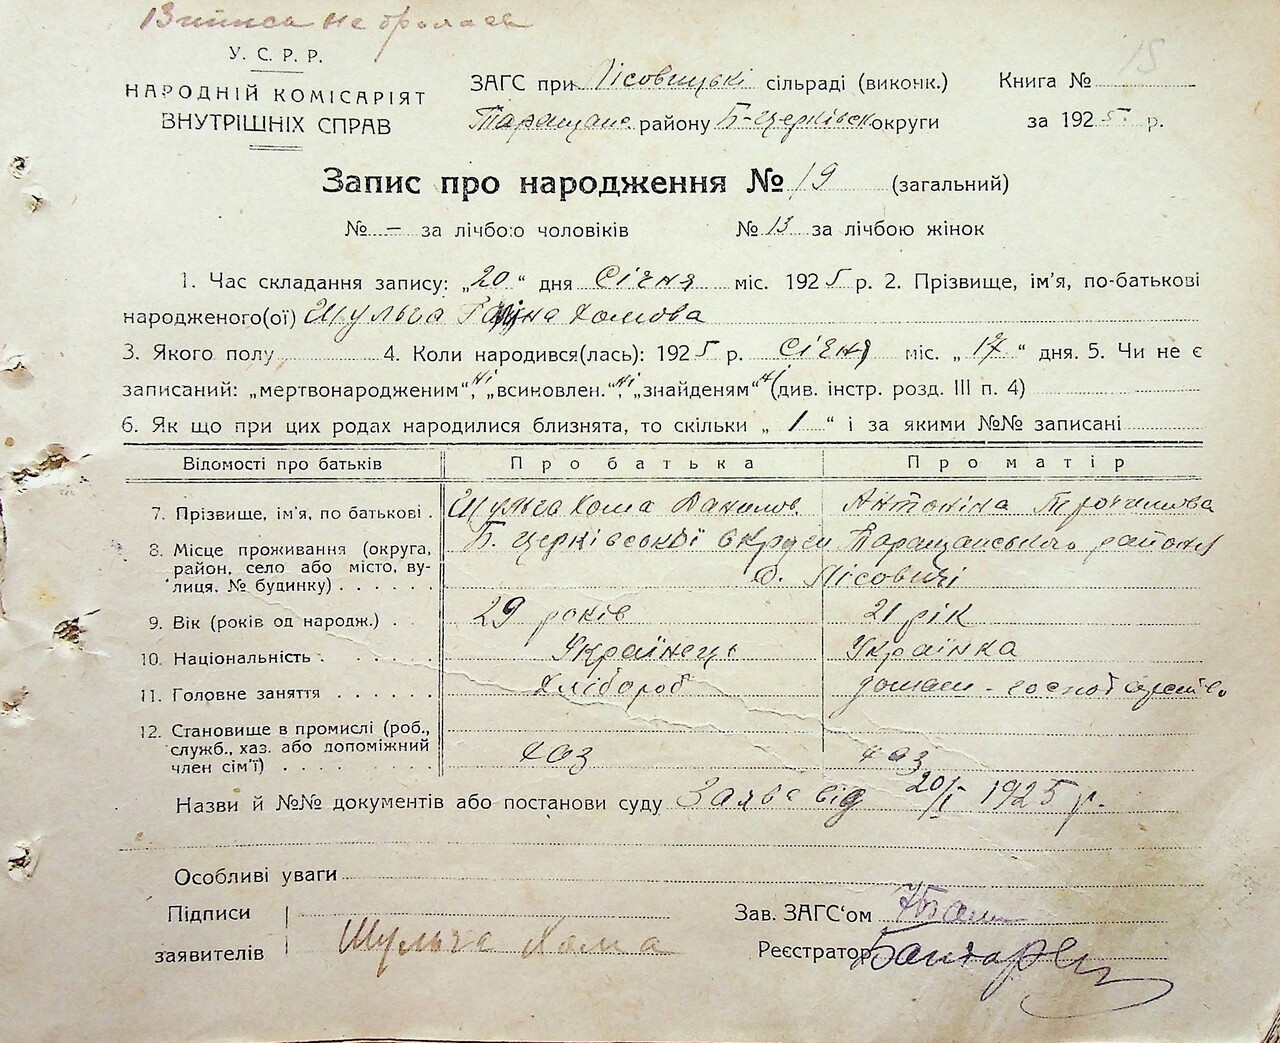 Виписа не бралась
15
У. С. Р. Р.
НАРОДНІЙ КОМІСАРІЯТ
ВНУТРІШНІХ СПРАВ
ЗАГС при Лісовицькі сільраді (виконк.)
Таращан. району Б-Церківск округи
Книга №
за 1925 р.
Запис про народження № 19 (загальний)
№ — за лічбою чоловіків № 13 за лічбою жінок
1. Час складання запису: „20“ дня Січня міс. 1925 р. 2. Прізвище, ім'я, по-батькові
народженого(ої) Шульга Ганна Хомова
3. Якого полу 4. Коли народився(лась): 1925 р. Січня міс. „17“ дня. 5. Чи не є
записаний: „мертвонародженим“, ні „всиновлен.“, ні „знайденям“ ні (див. інстр. розд. III п. 4)
6. Як що при цих родах народилися близнята, то скільки „1“ і за якими №№ записані
Відомості про батьків Про батька Про матір
7. Прізвище, ім'я, по батькові . Шульга Хома Данилов. Антоніна
8. Місце проживання (округа, Б. Церківської округи Таращанського району
район, село або місто, ву-
лиця, № будинку) . . . . . . с. Лісовичі
9. Вік (років од народж.) . . 29 років 21 рік
10. Національність . . . . . Українець Українка
11. Головне заняття . . . . . . Хлібороб домаш-
12. Становище в промислі (роб.,
служб., хаз. або допоміжний
член сім'ї) . . . . . . . хаз хаз
Назви й №№ документів або постанови суду Заява від 20/I 1925 р.
Особливі уваги
Підписи
заявителів Шульга Хома
Зав. ЗАГС'ом
Реєстратор